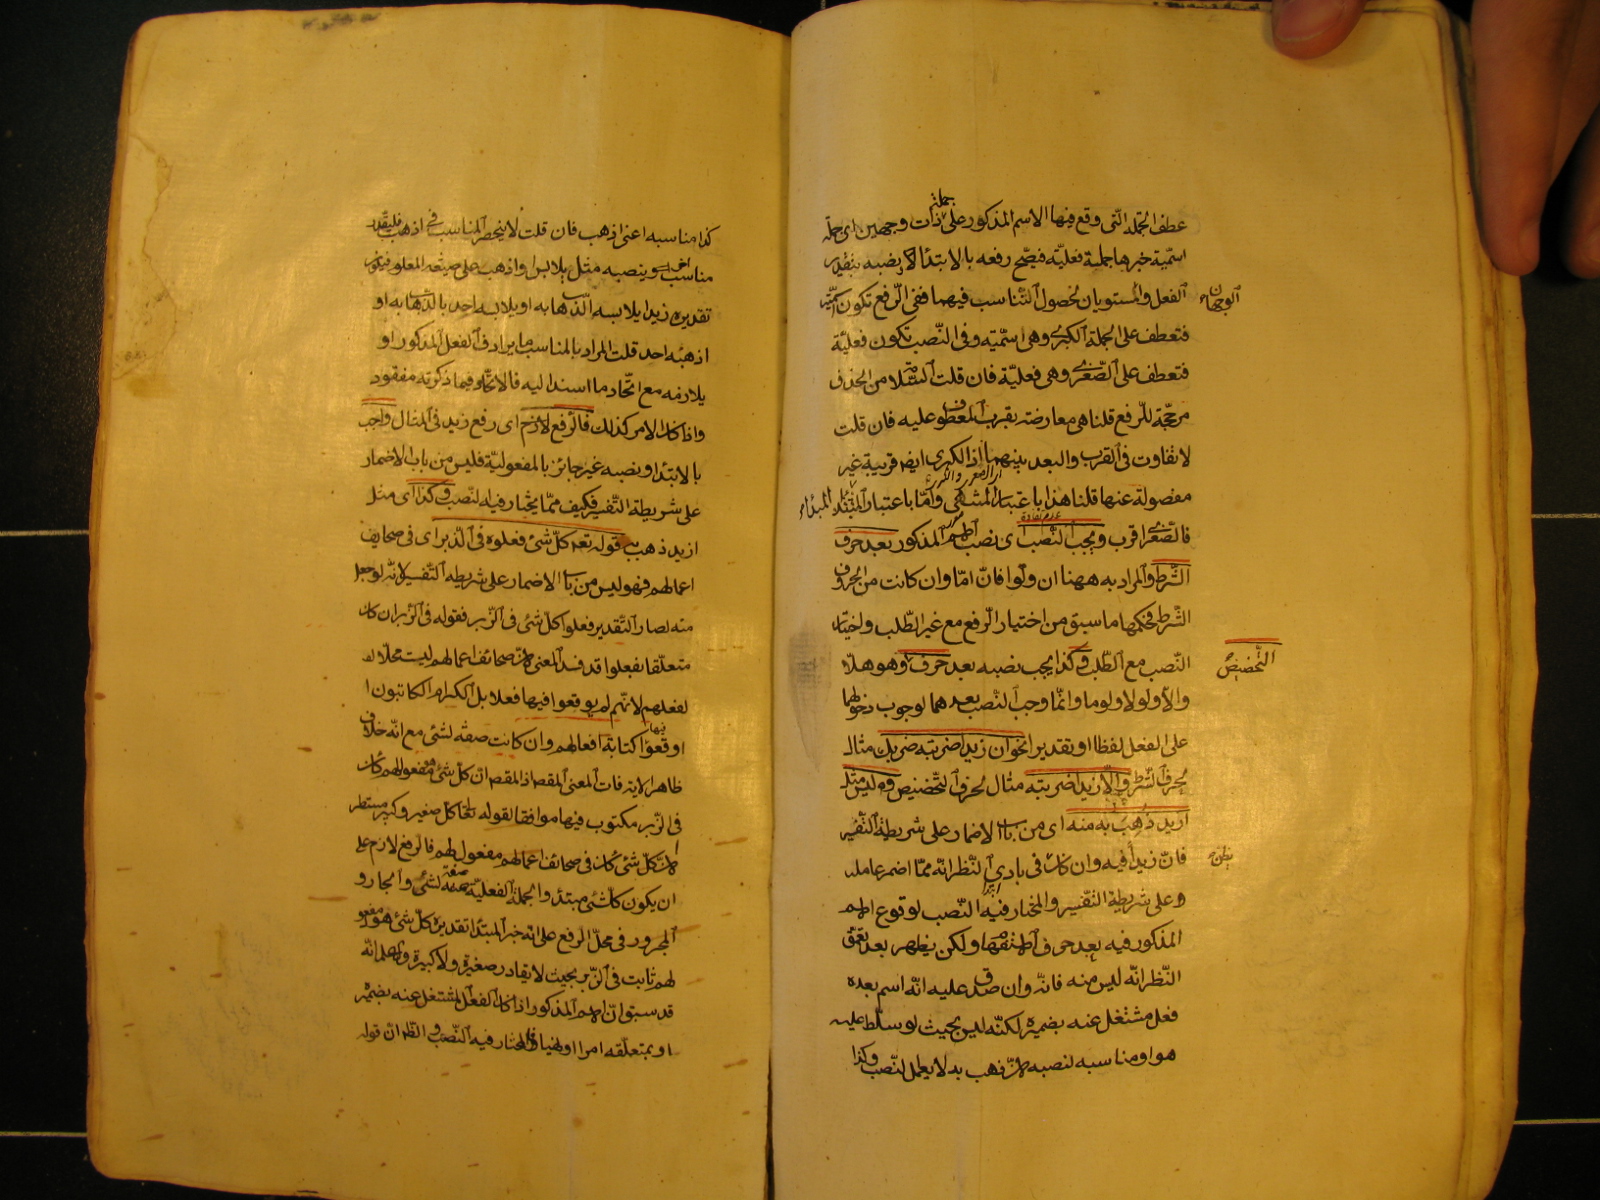 عطف الجملة التى وقع فيها الاسم المذكور على جملة ذات وجهين اى جملة
اسميّة خبرها جملة فعليّة فيصحّ رفعه بالابتداء ونصبه بتقدير
الفعل والمستويان لحصول التناسب فيهما ففى الرّفع تكون اسميّة
الوجهان
فتعطف على الجملة الكبرى وهى اسميّة وفى النّصب تكون فعليّة
فتعطف على الصّغرى وهى فعليّة فان قلت السّلامة من الحذف
مرجّحة للرّفع قلنا هى معارضة بقرب المعطوف عليه فان قلت
لا تفاوت فى القرب والبعد بينهما اذ الكبرى ايضا قريبة غير
مفصولة عنها قلنا هذا باعتبار المنتهى وامّا باعتبار المبتداء
فالصّغرى اقرب ويجب النّصب اى نصب الاسم المذكور بعد حرف
الشّرط والمراد به ههنا ان ولو فانّ امّا وان كانت من الحروف
الشّرط فحكمها ما سبق من اختيار الرّفع مع غير الطّلب واختيار
النّصب مع الطّلب وكذا يجب نصبه بعد حرف وهو هلّا
التّحضيض
والّا ولولا ولوما وانّما وجب النّصب بعدهما لوجوب دخولهما
على الفعل لفظا او تقديرا نحو ان زيدا ضربته ضربك مثال
لحرف الشّرط والّا زيدا ضربته مثال لحرف التّحضيض وليس مثل
ازيد ذهب به منه اى من باب الاضمار على شريطة التّفسير
فانّ زيدا فيه وان كان فى بادى النّظر انه ممّا اضمر عامله
يظنّ
وعلى شريطة التّفسير والمختار فيه النّصب لوقوع الاسم
المذكور فيه بعد حرف الاستفهام ولكن يظهر بعد تعمّق
النّظر انّه ليس منه فانّه وان صدق عليه انّه اسم بعده
فعل مشتغل عنه بضميره لكنّه ليس بحيث لو سلّط عليه
هو او مناسبه لنصبه لانّ ذهب به لا يعمل النّصب وكذا
كذا مناسبه اعنى اذهب فان قلت لا ينحصر المناسب فى اذهب فليقدّر
مناسب اخر ينصبه مثل يلابس او اذهب على صيغة المعلوم فيكون
تقديره زيدا يلابسه الذّهاب به او يلابسه احد بالذّهاب به او
اذهبه احد قلت المراد بالمناسب ما يرادف الفعل المذكور او
يلازمه مع اتّحاد ما اسند اليه فالاتّحاد فيما ذكرته مفقود
واذا كان الامر كذلك فالرّفع لازم اى رفع زيد فى المثال واجب
بالابتداء ونصبه غير جائز بالمفعوليّة فليس من باب الاضمار
على شريطة التّفسير فكيف ممّا يختار فيه النّصب وكذا اى مثل
ازيد ذهب به قوله تعه كلّ شئ فعلوه فى الزّبر اى فى صحايف
اعمالهم فهو ليس من باب الاضمار على شريطة التّفسير لانّه لو جعل
منه لصار التّقدير فعلوا كلّ شئ فى الزّبر فقوله فى الزّبر ان كان
متعلّقا بفعلوا قد فسد المعنى لانّ صحائف اعمالهم ليست محلّا
لفعلهم لانّهم لم يوقعوا فيها فعلا بل الكرام الكاتبون
اوقعوا فيها كتابة افعالهم وان كانت صفة لشئ مع انّه خلاف
ظاهر الاية فات المعنى المقصود اذ المقصود انّ كلّ شئ مفعول لهم كائن
فى الزّبر مكتوب فيها موافقا لقوله تعا كلّ صغير وكبير مستطر
لا انّ كلّ شئ كائن فى صحائف اعمالهم مفعول لهم فالرّفع لازم على
ان يكون كلّ شئ مبتدأ والجملة الفعليّة صفة لشئ والجار و
المجرور فى محلّ الرفع على انّه خبر المبتدا تقديره كلّ شئ هو مفعول
لهم ثابت فى الزّبر بحيث لا يغادر صغيرة ولا كبيرة واعلم انّه
قد سبق انّ الاسم المذكور اذا كان الفعل المشتغل عنه بضميره
او بمتعلّقه امرا او نهيا فالمختار فيه النّصب والظّ انّ قوله